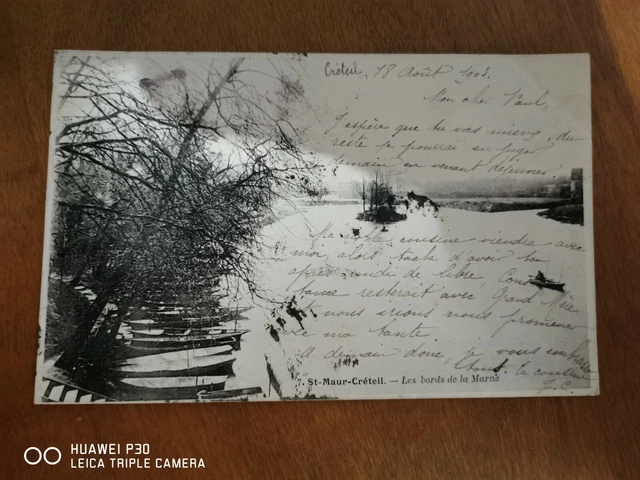 Créteil, 18 Août 1903.
Mon cher Paul,
J'espère que tu vas mieux, du
reste je pourrai en juger
demain en venant déjeuner.
Ma cousine viendra avec
moi, alors tache d'avoir ton
après-midi de libre,
tance resterait avec Grand Mère
et nous irions nous promener
ma tante
A demain donc, je vous embrasse
tous.
7. St-Maur-Créteil. — Les bords de la Marne
HUAWEI P30
LEICA TRIPLE CAMERA